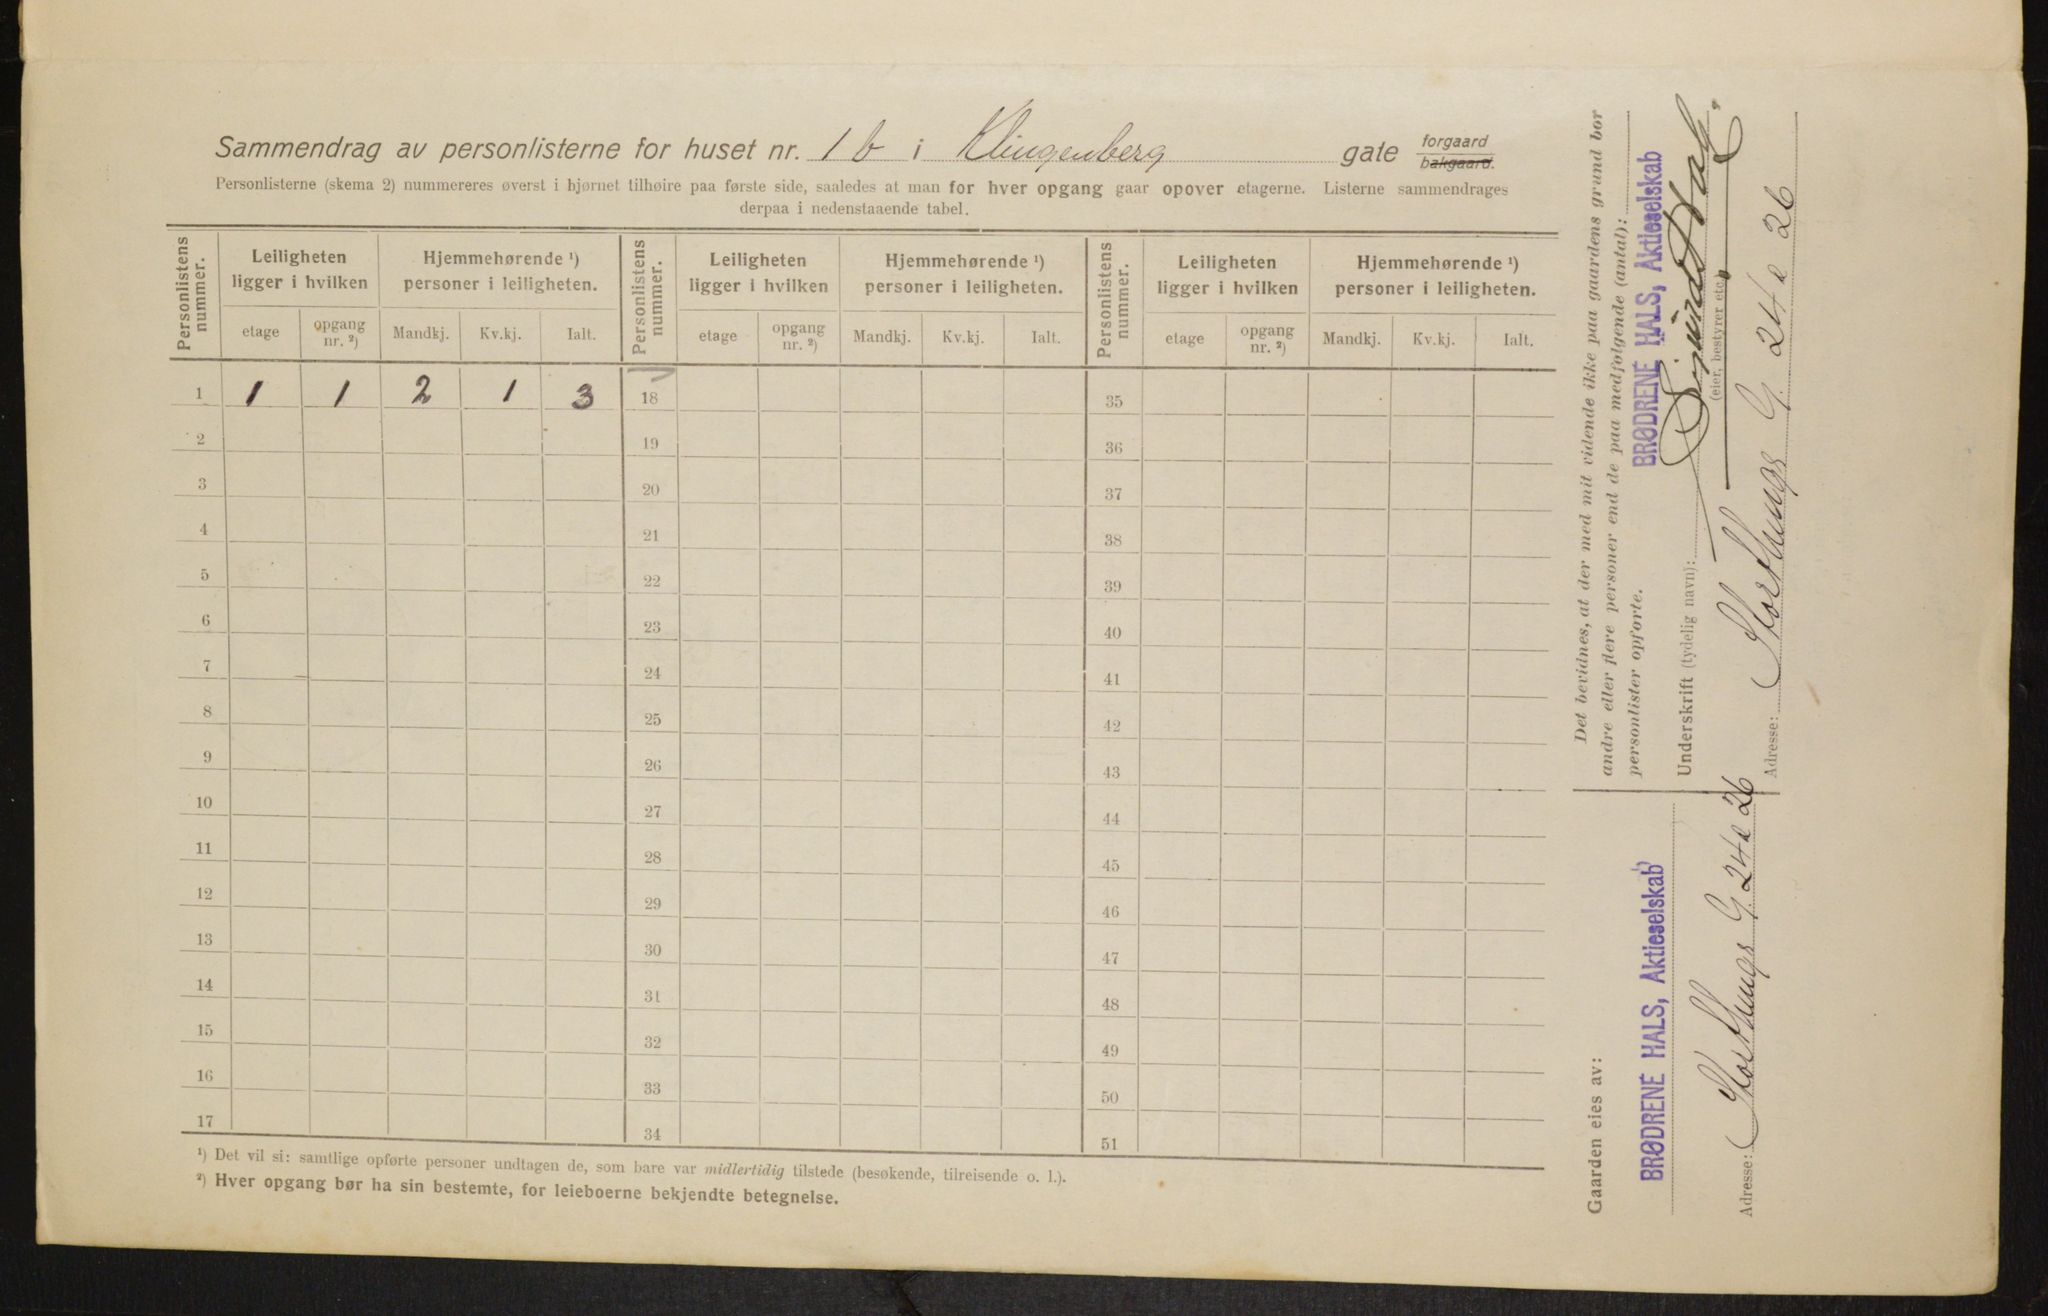 Sammendrag av personlisterne for huset nr. 1 b i Klingenberg gate forgaard bakgaard.
Personlisterne (skema 2) nummereres øverst i hjørnet tilhøire paa første side, saaledes at man for hver opgang gaar opover etagerne. Listerne sammendrages
derpaa i nedenstaaende tabel.
Personlistens nummer. Leiligheten ligger i hvilken Hjemmehørende ¹) personer i leiligheten. Personlistens nummer. Leiligheten ligger i hvilken Hjemmehørende ¹) personer i leiligheten. Personlistens nummer. Leiligheten ligger i hvilken Hjemmehørende ¹) personer i leiligheten.
etage opgang nr. ²) Mandkj. Kv.kj. Ialt. etage opgang nr. ²) Mandkj. Kv.kj. Ialt. etage opgang nr. ²) Mandkj. Kv.kj. Ialt.
1 1 1 2 1 3 18 35
2 19 36
3 20 37
4 21 38
5 22 39
6 23 40
7 24 41
8 25 42
9 26 43
10 27 44
11 28 45
12 29 46
13 30 47
14 31 48
15 32 49
16 33 50
17 34 51
¹) Det vil si: samtlige opførte personer undtagen de, som bare var midlertidig tilstede (besøkende, tilreisende o. l.).
²) Hver opgang bør ha sin bestemte, for leieboerne bekjendte betegnelse.
Det bevidnes, at der med mit vidende ikke paa gaardens grund bor
andre eller flere personer end de paa medfølgende (antal):
personlister opførte.
BRØDRENE HALS, Aktieselskab
Underskrift (tydelig navn): Sigurd Hals
(eier, bestyrer etc.)
Adresse: Storthings G. 24 & 26
Gaarden eies av:
BRØDRENE HALS, Aktieselskab
Adresse: Storthings G. 24 & 26